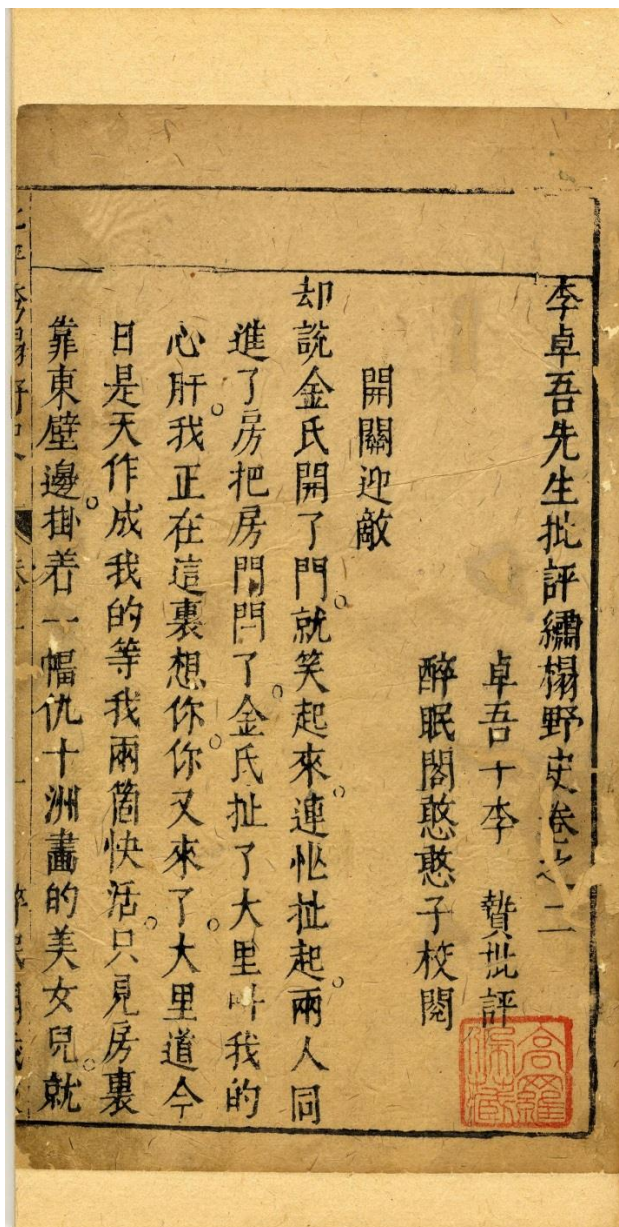 李卓吾先生批評繡榻野史卷之二
卓吾李 贄批評
醉眠閣憨憨子校閱
開關迎敵
却說金氏開了門。就笑起來。連忙扯起。兩人同
進了房把房門閂了。金氏扯了大里叫我的
心肝。我正在這裏想你。你又來了。大里道今
日是天作成我的等我兩箇快活。只見房裏
靠東壁邊。掛着一幅仇十洲畫的美女兒。就
高羅佩藏